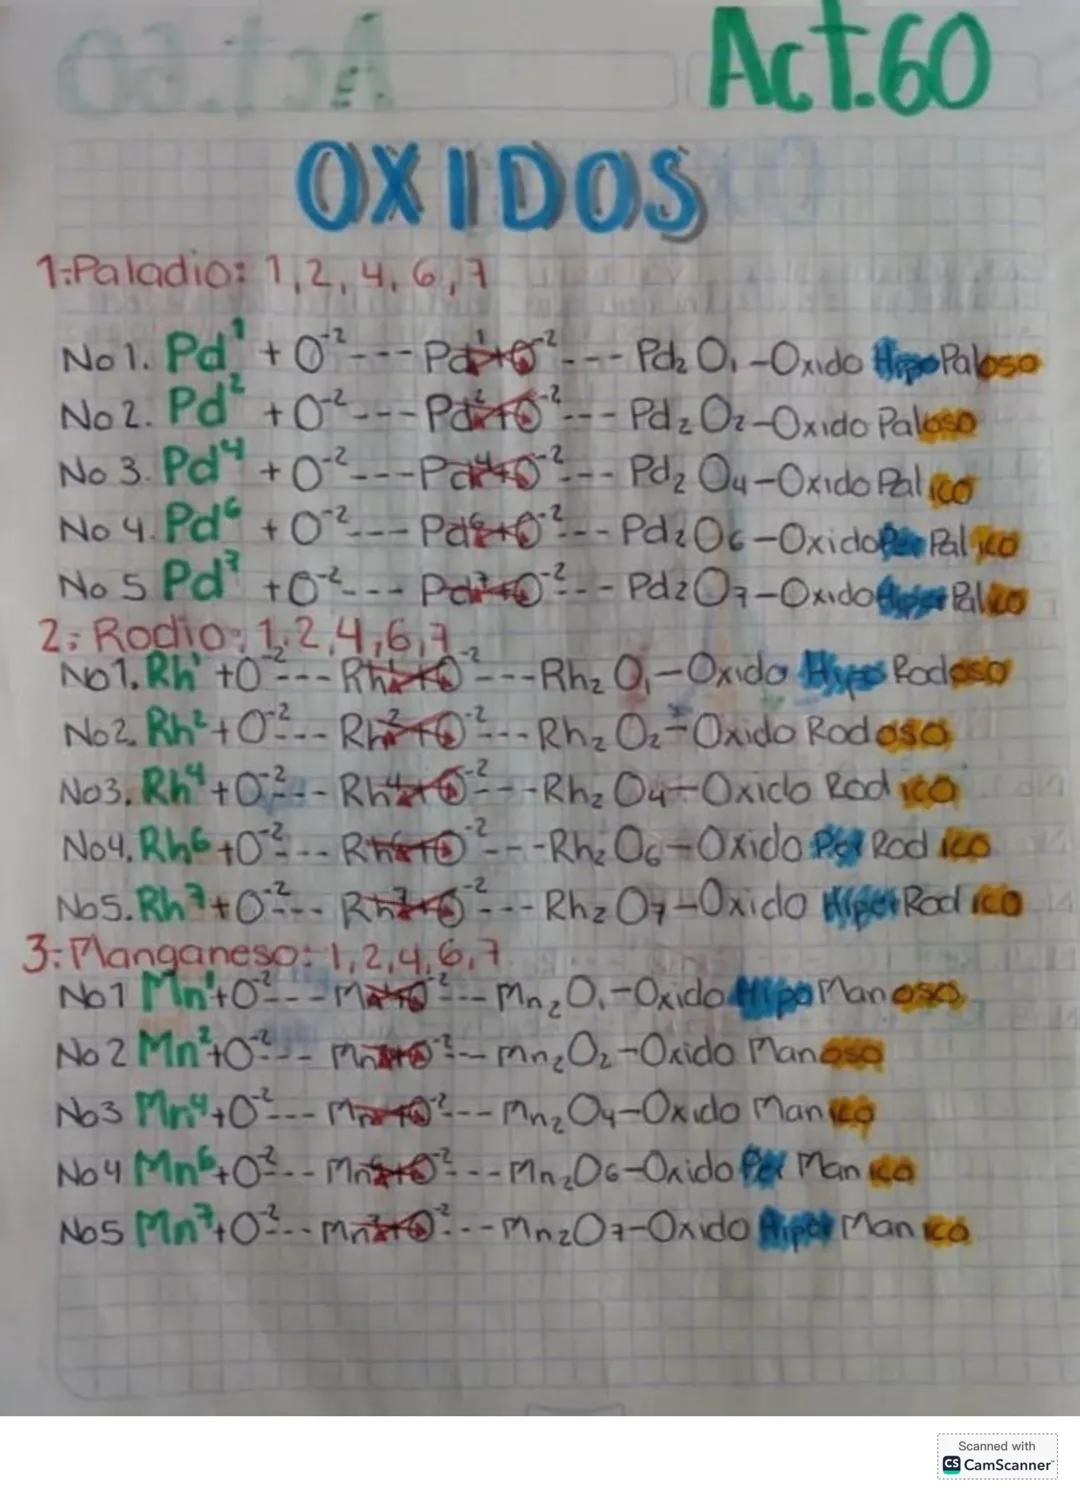 Act.60
OXIDOS
1:Paladio: 1,2,4,6,7
No 1. Pd¹ + O⁻² --- Pd¹+O⁻² --- Pd₂ O₁ -Oxido Hipo Paloso
No 2. Pd² + O⁻² --- Pd²+O⁻² --- Pd₂ O₂ -Oxido Paloso
No 3. Pd⁴ + O⁻² --- Pd⁴+O⁻² --- Pd₂ O₄ -Oxido Palico
No 4. Pd⁶ + O⁻² --- Pd⁶+O⁻² --- Pd₂O₆ -Oxido Per Palico
No 5 Pd⁷ + O⁻² --- Pd⁷+O⁻² --- Pd₂O₇ -Oxido Hiper Palico
2: Rodio: 1,2,4,6,7
No1. Rh¹ +O⁻² --- Rh¹+O⁻² --- Rh₂ O₁ -Oxido Hipo Rodoso
No2. Rh² +O⁻² --- Rh²+O⁻² --- Rh₂ O₂ -Oxido Rodoso
No3. Rh⁴ +O⁻² --- Rh⁴+O⁻² --- Rh₂ O₄ -Oxido Rodico
No4. Rh⁶ +O⁻² --- Rh⁶+O⁻² --- Rh₂ O₆ -Oxido Per Rodico
No5. Rh⁷ +O⁻² --- Rh⁷+O⁻² --- Rh₂ O₇ -Oxido Hiper Rodico
3: Manganeso: 1,2,4,6,7
No1 Mn¹+O⁻² --- Mn¹+O⁻² --- Mn₂O₁ -Oxido Hipo Manoso
No 2 Mn²+O⁻² --- Mn²+O⁻² --- Mn₂O₂ -Oxido Manoso
No3 Mn⁴+O⁻² --- Mn⁴+O⁻² --- Mn₂O₄ -Oxido Manico
No4 Mn⁶+O⁻² --- Mn⁶+O⁻² --- Mn₂O₆ -Oxido Per Manico
No5 Mn⁷+O⁻² --- Mn⁷+O⁻² --- Mn₂O₇ -Oxido Hiper Manico
Scanned with
CS CamScanner